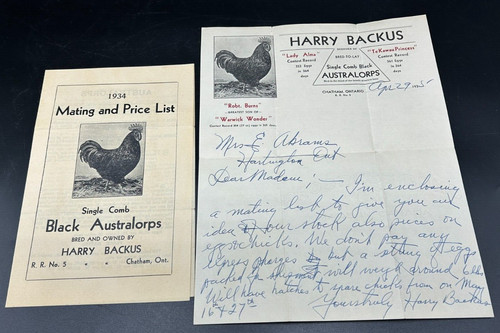 1934
Mating and Price List
Single Comb
Black Australorps
BRED AND OWNED BY
HARRY BACKUS
R. R. No. 5 Chatham, Ont.
HARRY BACKUS
"Lady Alma"
Contest Record
Eggs
in 365
days
BRED-TO-LAY
Single Comb Black
AUSTRALORPS
CHATHAM, ONTARIO
R. R. No. 5
"TeKawea Princess"
Contest Record
Eggs
in 365
days
"Robt. Burns"
GREATEST SON OF
"Warwick Wonder"
Apr 29
Mrs E Abrams
Hartington Ont
Dear Madame; — I'm enclosing
a mating list to give you an
idea of our stock also prices on
eggs & chicks. We don't pay any
express charges but a setting of eggs
packed to shipment will weigh around lbs
Will have hatches to spare chicks from on May
16th & 27th
Yours truly Harry Backus